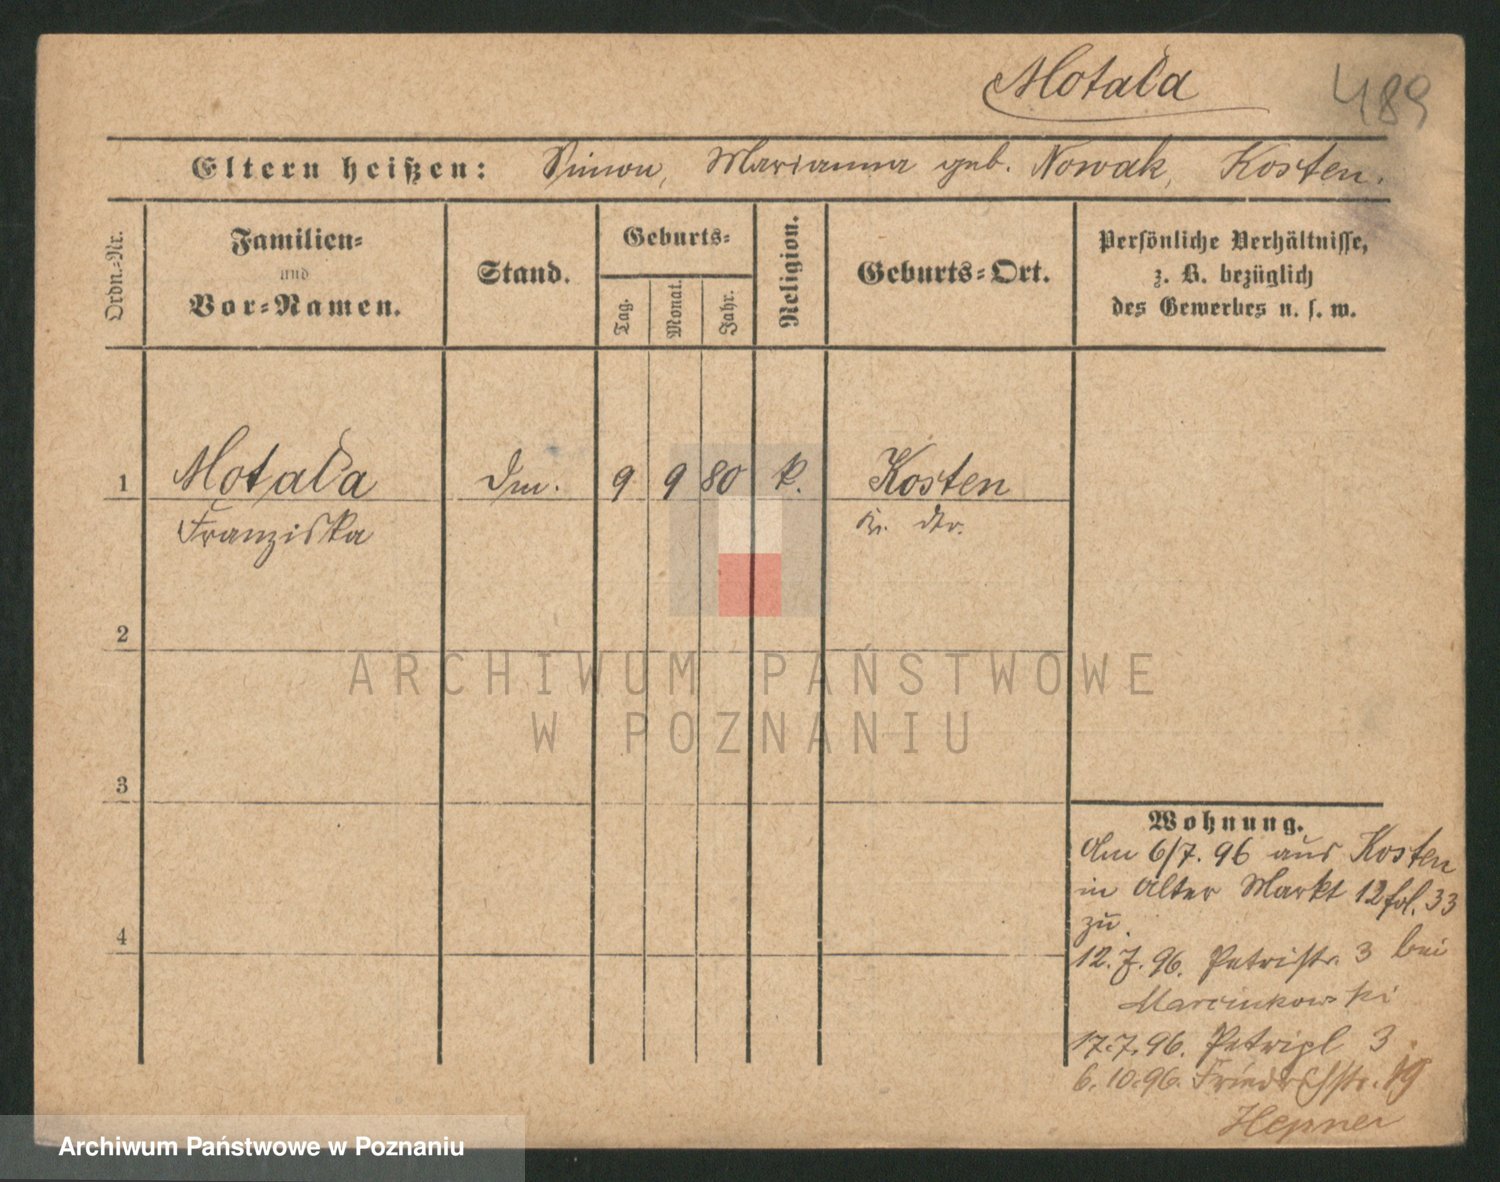 Motała
489
Eltern heißen: Simon, Marianna geb. Nowak, Kosten.
Ordn.-Nr.
Familien-
und
Vor-Namen.
Stand.
Geburts-
Tag.
Monat.
Jahr.
Religion.
Geburts-Ort.
Persönliche Verhältnisse,
z. B. bezüglich
des Gewerbes u. s. w.
1 Motała 9 9 80 k. Kosten
Franziska
2
3
4
Wohnung.
Am 6/7. 96 aus Kosten
in Alter Markt 12 fol. 33
zu.
12. 7. 96. Petristr. 3 bei
Marcinkowski
17. 7. 96. Petripl 3.
6. 10. 96. Friedrichstr. 19
Hepner
ARCHIWUM PAŃSTWOWE
W POZNANIU
Archiwum Państwowe w Poznaniu